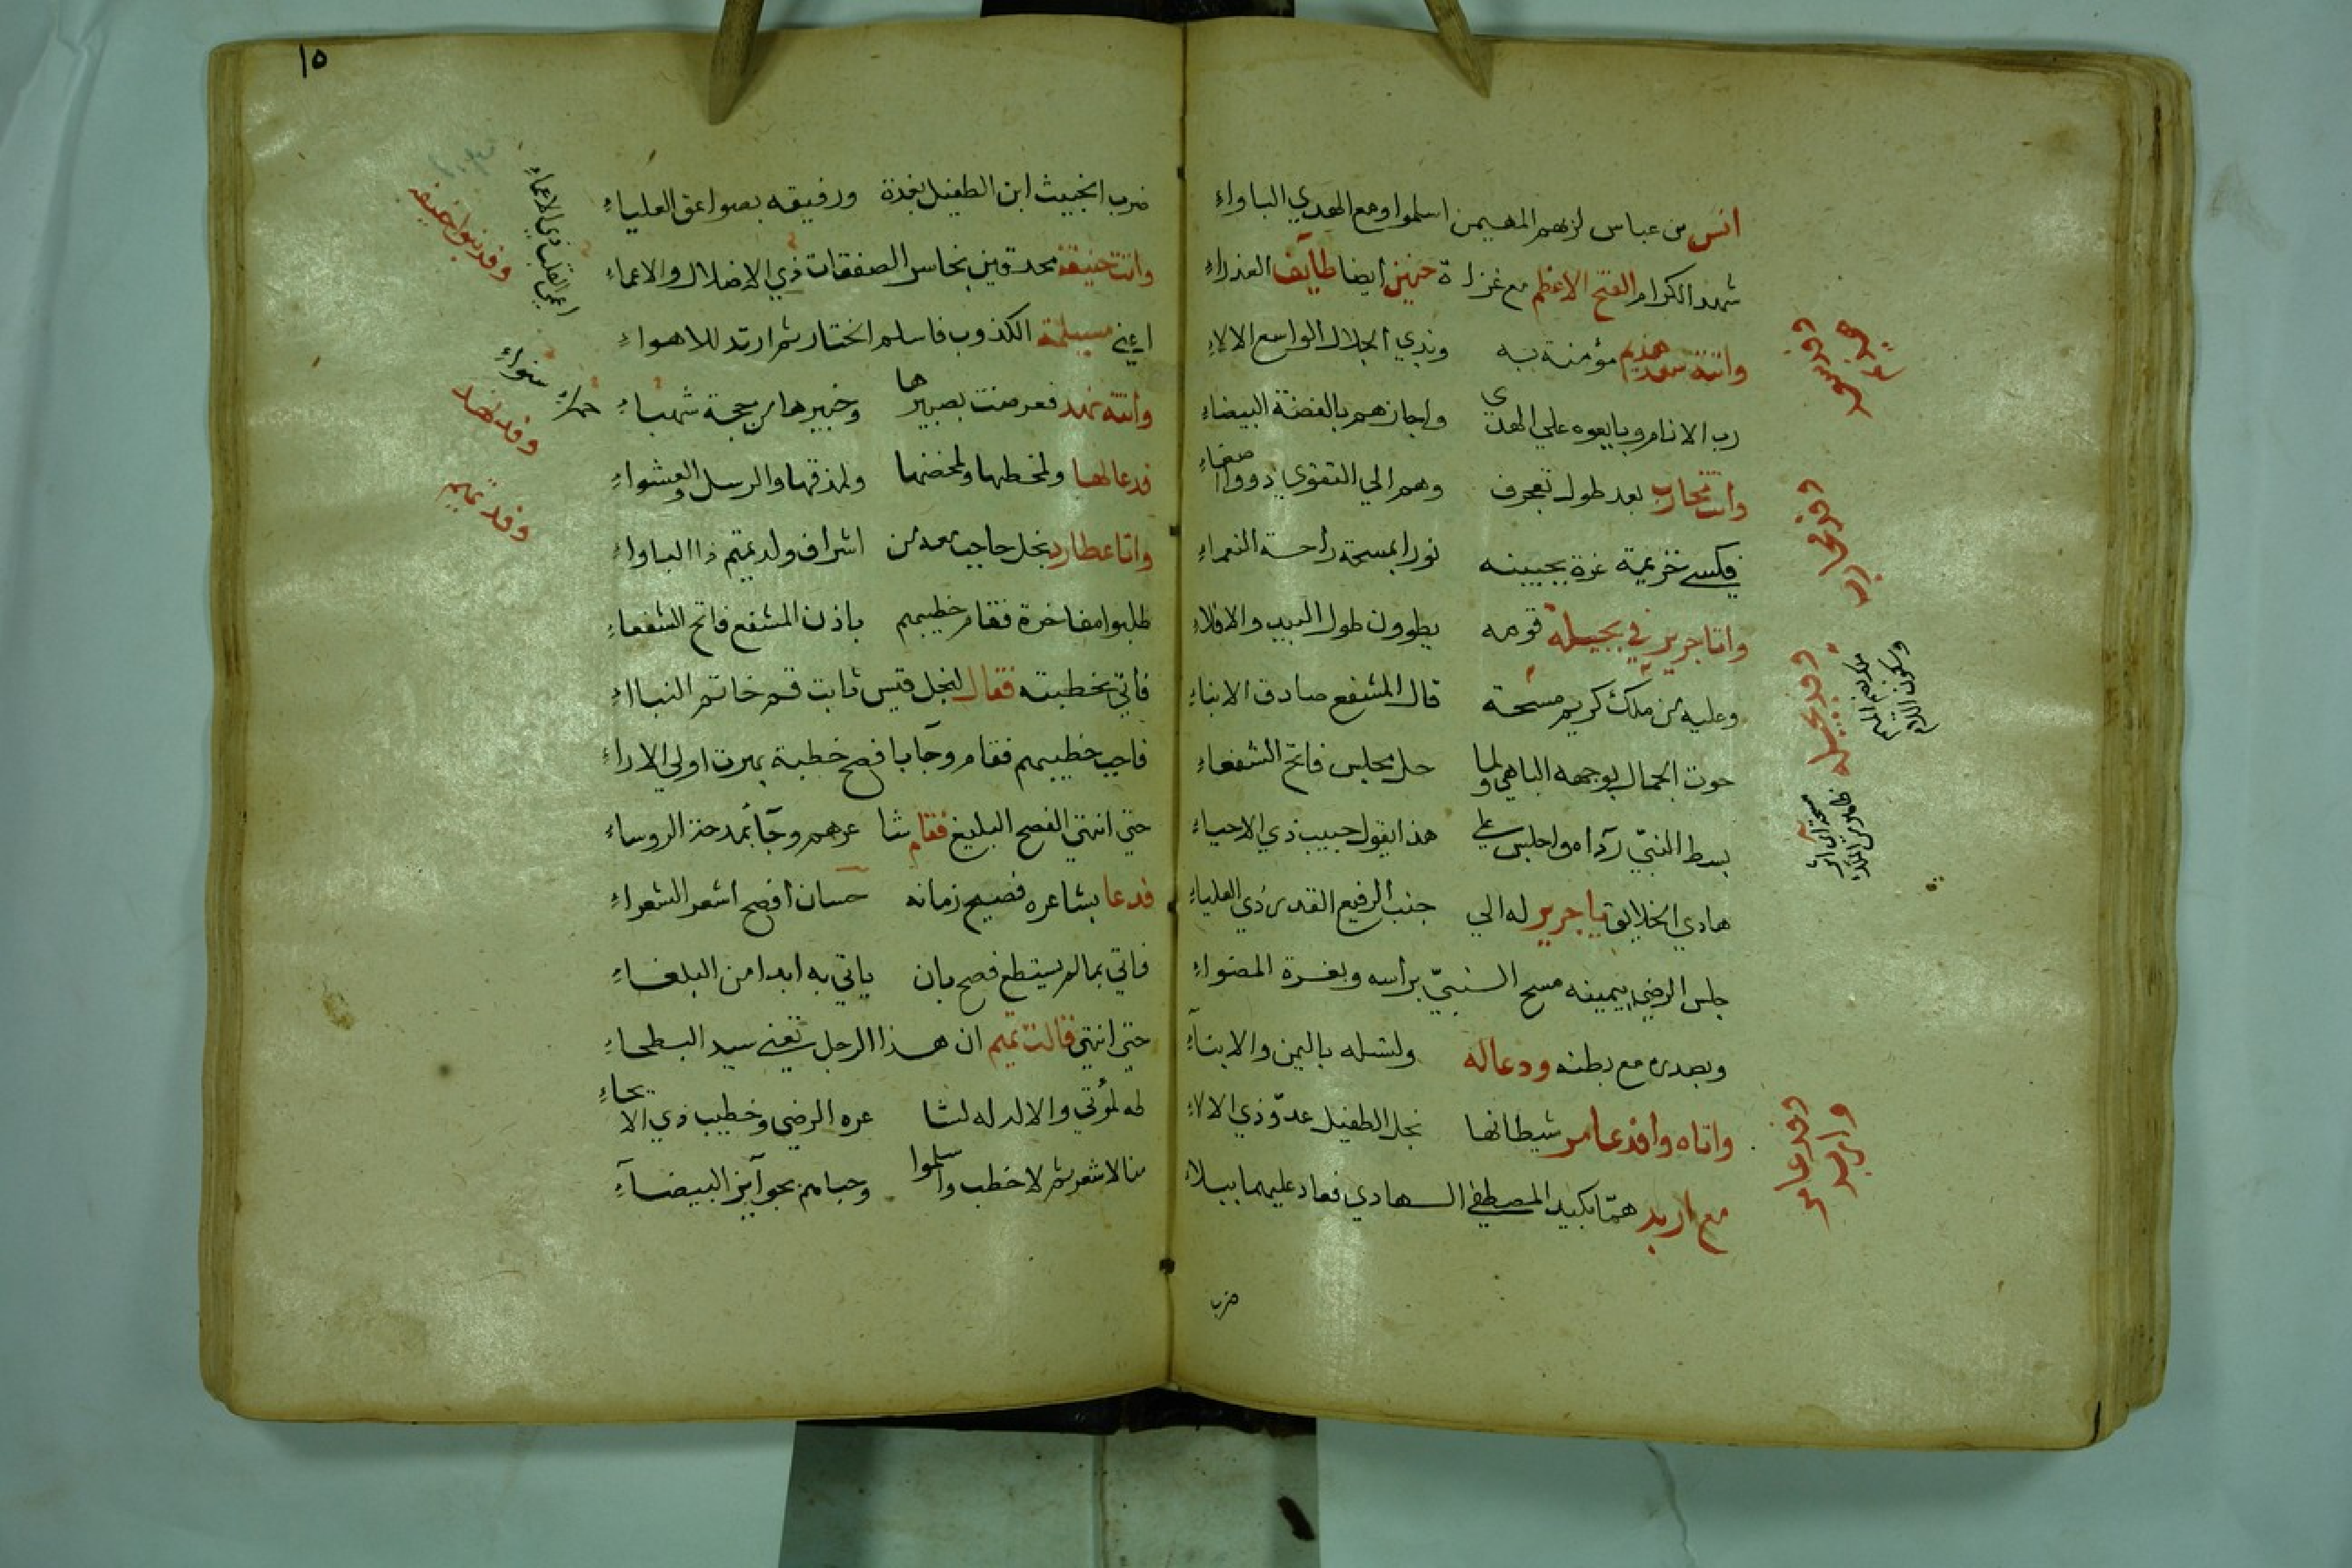 انس بن عباس لزمهم المهيمن اسلموا ومع الهدي الباواءِ
شهد الكرام الفتح الاعظم مع غزاة حنين ايضا طايف العذراءِ
واتته سعد هذيم مؤمنة به وبذي الجلال الواسع الالاءِ
رب الانام وبايعوه علي الهدى واجازهم بالفضة البيضاءِ
واتت محارب بعد طول تعجرف وهم الي التقوي ذووا اصغاءِ
فكسي خزيمة غرة بجبينه نورا بمسحة راحة النعماءِ
واتا جرير في بجيلة قومه يطوون طول البيد والافلاءِ
وعليه من ملك كريم مسحة قال المشفع صادق الانباءِ
حوت الجمال بوجهه الباهي ولما حل مجلس فاتح الشفعاءِ
بسط النبيّ رداه واجلس علي هذا يقول حبيب ذي الاحياءِ
هادي الخلايق يا جرير له الي جنب الرفيع القدر ذي العلياءِ
جلس الرضي بيمينه مسح النبيّ براسه وبغرة المضواءِ
وبصدره مع بطنه ودعا له ولنسله باليمن والابناءِ
واتاه وافد عامر شيطانها نجل الطفيل عدوّ ذي الالاءِ
مع اربد همّا بكيد المصطفي الهادي فعاد عليهما ببلاءِ
ضرب
وفد محارب
وفد بجيلة
وفد عامر
واربد
١٥
ضرب الخبيث ابن الطفيل بغدة ورفيقه بصواعق العلياءِ
واتت حنيفة محدقين بخاسر الصفقات ذي الاضلال والاعماءِ
اعني مسيلمة الكذوب فاسلم الختار ثم ارتد للاهواءِ
واتته نهد فعرضت بصبيرها وخبيرها من حجة شهباءِ
فدعا لها ولمخطها ولمحضها ولمذقها والرسل والعشواءِ
واتا عطارد نجل حاجب معه من اشراف ولد تميم ذا الباواءِ
طلبوا مفاخرة فقام خطيبهم باذن المشفع فاتح الشفعاءِ
فاتي بخطبته فقال لنجل قيس ثابت قم خاتم النباءِ
فاجب خطيبهم فقام وجآ بافصح خطبة بهرت اولي الاراءِ
حتي انتهي الفصح البليغ فقام شاعرهم وجآ بمدحة الروساءِ
فدعا بشاعره فصيح زمانه حسان افصح اشعر الشعراءِ
فاتي بما لم يستطع فصح بان ياتي به ابدا من البلغاءِ
حتي انتهي قالت تميم ان هذا الرجل تعني سيد البطحاءِ
له لمؤتي والالاله لشا عره الرضي وخطيب ذي الايحاءِ
منا لاشعر ثم لاخطب واسلموا وحباهم بجوآيز البيضآءِ
وفد بنوا حنيفه
وفد نهد
وفد تميم